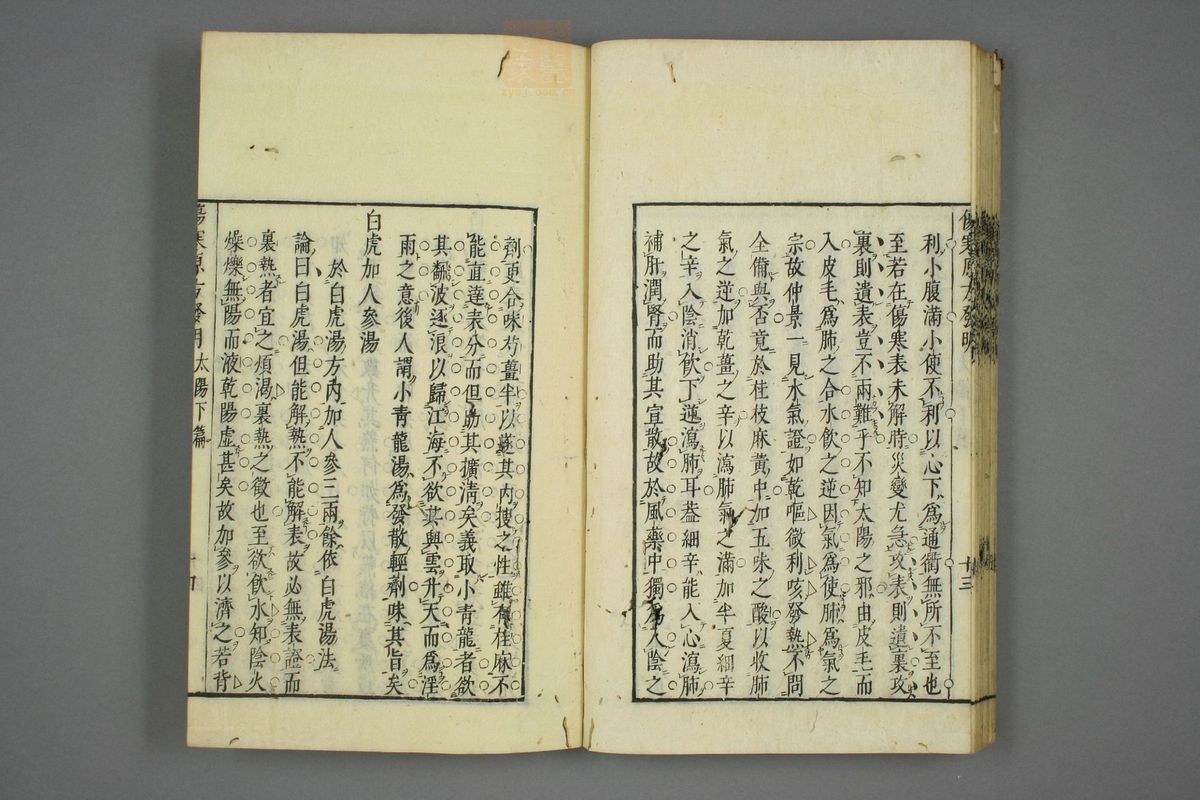 利小腹滿小便不利以心下爲通衢無所不至也
至若在傷寒表未解時災變尤急攻表則遺裏攻
裏則遺表豈不兩難乎不知太陽之邪由皮毛而
入皮毛爲肺之合水飲之逆因氣爲使肺爲氣之
宗故仲景一見水氣證如乾嘔微利咳發熱不問
全備與否竟於桂枝麻黃中加五味之酸以收肺
氣之逆加乾薑之辛以瀉肺氣之滿加半夏細辛
之辛入陰消飲下逆瀉肺耳葢細辛能入心瀉肺
補肝潤腎而助其宣散故於風藥中獨爲入陰之
傷寒原方發明
十三
劑更合味芍薑半以蕩其內搜之性雖有桂麻不
能直達表分而但助其擴淸矣義取小青龍者欲
其翻波逐浪以歸江海不欲其興雲升天而爲淫
雨之意後人謂小青龍湯爲發散輕劑味其旨矣
白虎加人參湯
於白虎湯方內加人參三兩餘依白虎湯法
論曰白虎湯但能解熱不能解表故必無表證而
裏熱者宜之煩渴裏熱之徵也至欲飲水知陰火
燥爍無陽而液乾陽虛甚矣故加參以濟之若背
傷寒原方發明 太陽下篇
十四
zysj.com.cn